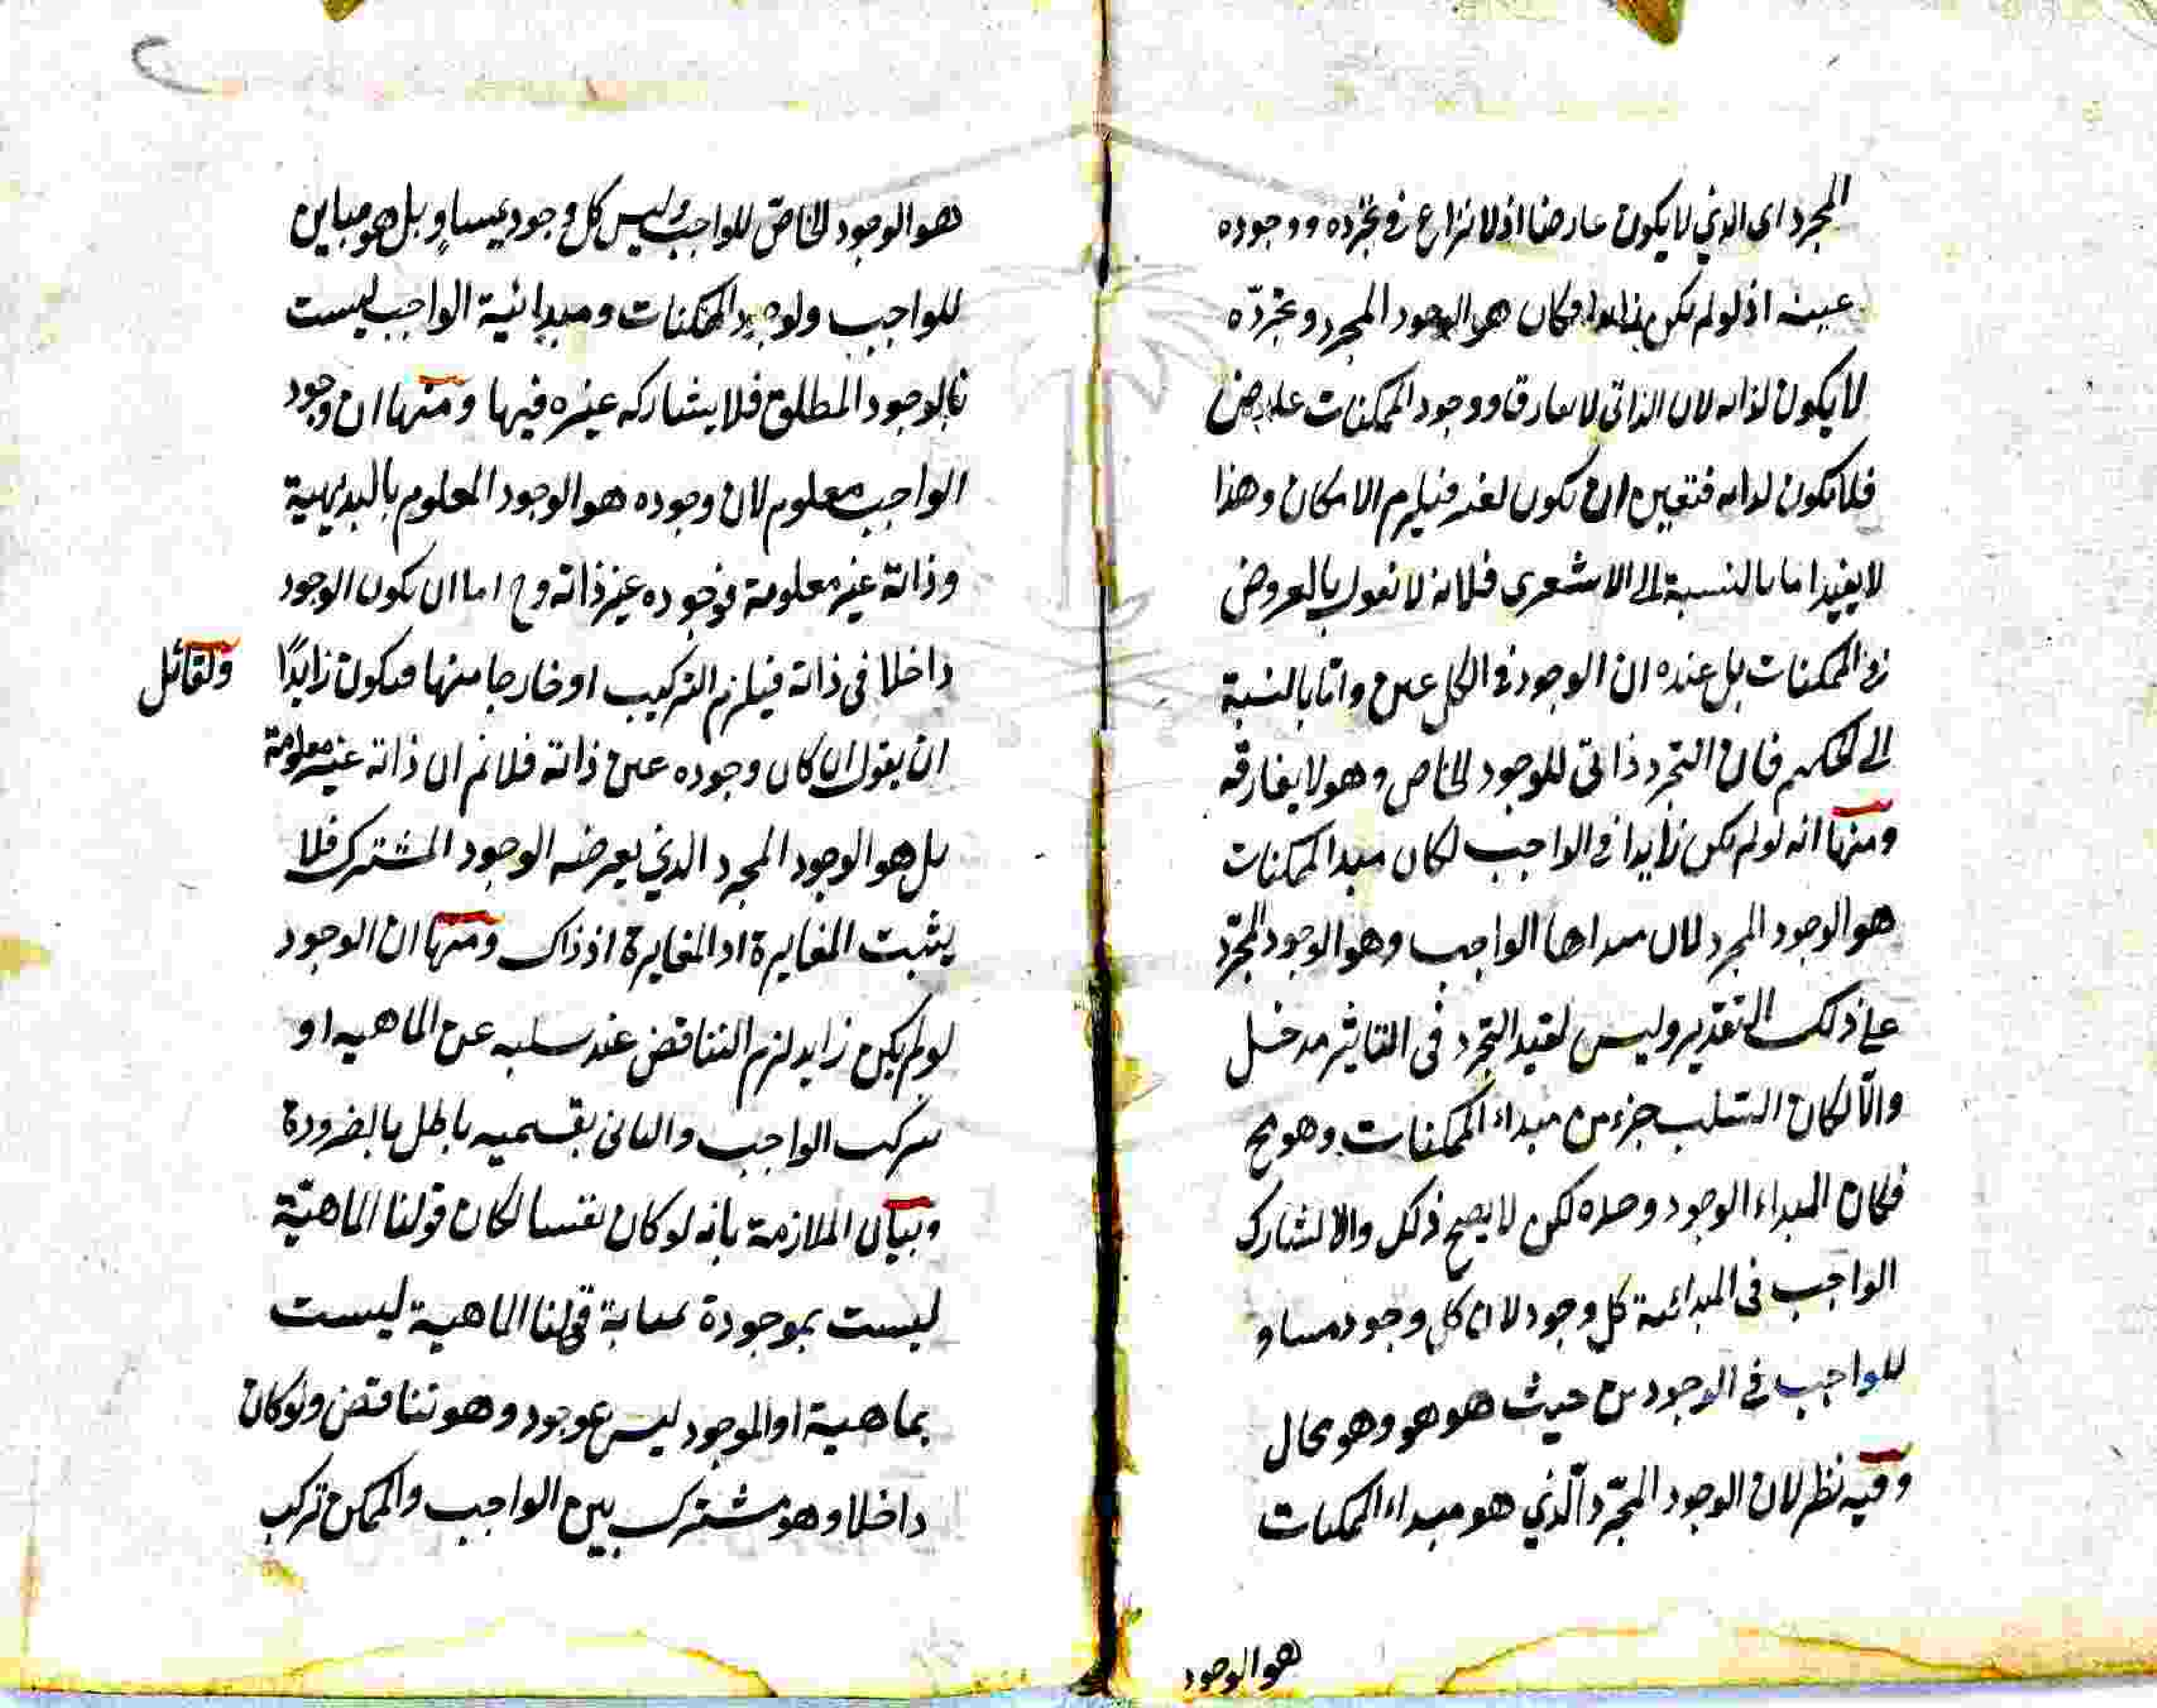 المجرد اى الذي لا يكون عارضا اذ لا نزاع في تجرده ووجوده
عينه اذ لو لم يكن فكان هو الوجود المجرد وتجرّده
لا يكون لذاته لان الذاتى لا يفارق ووجود الممكنات عارض
فلا يكون لذاته فتعين ان يكون لغيره فيلزم الامكان وهذا
لا يفيد اما بالنسبة الى الاشعرى فلانه لا نقول بالعروض
في الممكنات بل عنده ان الوجود في الكل عين واما بالنسبة
الى الحكيم فان التجرد ذاتى للوجود الخاص وهو لا يفارقه
ومنها انه لو لم يكن زايدا في الواجب لكان مبدا الممكنات
هو الوجود المجرد لان مبداها الواجب وهو الوجود المجرّد
على ذلك التقدير وليس لقيد التجرد فى التاثير مدخل
والّا لكان السلب جزء من مبداء الممكنات وهو مح
فكان المبداء الوجود وحده لكن لا يصح ذلك والا لشارك
الواجب فى المبدائية كل وجود لان كل وجود مساو
للواجب في الوجود من حيث هو هو وهو محال
وفيه نظر لان الوجود المجرّد الّذي هو مبداء الممكنات
هو الوجود
هو الوجود الخاص للواجب وليس كل وجود يساو بل هو مباين
للواجب ولوجود الممكنات ومبدائية الواجب ليست
بالوجود المطلق فلا يشاركه غيره فيها ومنها ان وجود
الواجب معلوم لان وجوده هو الوجود المعلوم بالبديهية
وذاته غير معلومة فوجوده غير ذاته وح اما ان يكون الوجود
داخلا فى ذاته فيلزم التركيب او خارجا منها فيكون زايدًا ولقائل
ان يقول ان كان وجوده عين ذاته فلا نم ان ذاته غير معلومة
بل هو الوجود المجرد الذي يعرضه الوجود المشترك فلا
يثبت المغايرة او المغايرة اذ ذاك ومنها ان الوجود
لو لم يكن زايد لزم التناقض عند سلبه عن الماهيه او
تركب الواجب والثانى بقسميه باطل بالضرورة
وبيان الملازمة بانه لو كان نفسا لكان قولنا الماهيّة
ليست بموجودة بمثابة قولنا الماهية ليست
بماهية او الموجود ليس بموجود وهو تناقض ولو كان
داخلا وهو مشترك بين الواجب والممكن تركب